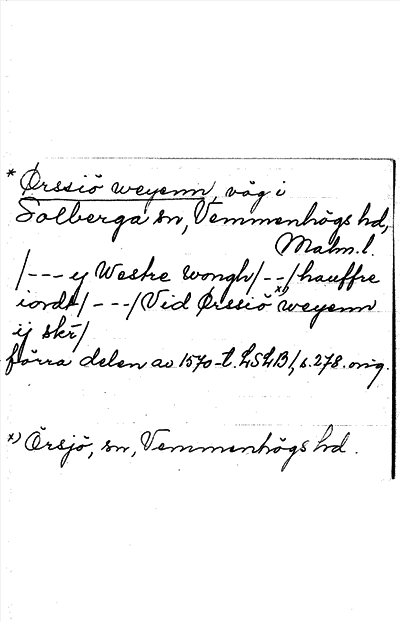 * Ørssiö weyenn, väg i
Solberga sn, Vemmenhögs hd,
Malm. l.
/--- y Westre wongh/--/hauffre
iordt/---/Vid Ørssiö x) weyenn
ij skr̄/
förra delen av 1570-t. LSLB1, s. 278. orig.
x) Örsjö, sn, Vemmenhögs hd.